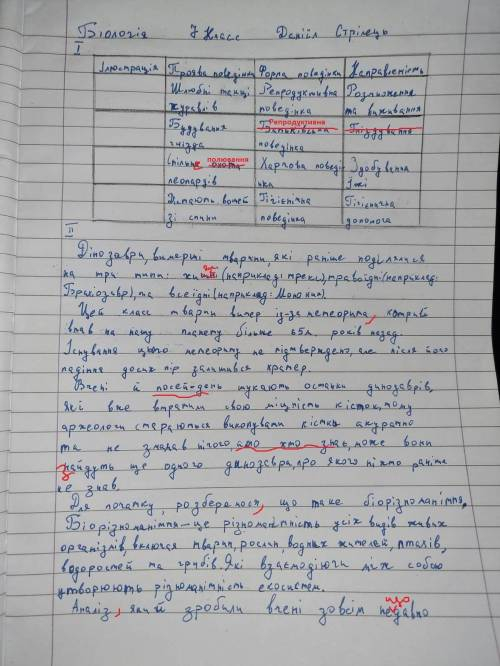 Біологія 7 Класс Даніїл Стрілець
I
Ілюстрація Проява поведінки Форма поведінки Направленість
Шлюбні танці Репродуктивна Розмноження
журавлів поведінка та виживання
Репродуктивна
Будування Батьківська Гніздування
гнізда поведінка
полювання
Спільне охота Харчова поведі Здобування
леопардів нка їжі
Гігієнічна Гігієнична
зі спини поведінка допомога
II
Дінозаври, вимерші тварини, які раніше поділялися
на три типи: (наприклад: трекс), травоїдні (наприклад:
Брахіозавр), та всеїдні (наприклад: Мононик).
Цей клас тварин вимер із-за метеорита, котрий
впав на нашу планету більше 65м. років назад.
Існування цього метеориту не підтверджено, але після його
падіння досих пір залишився кратер.
Вчені й посей-день шукають останки динозаврів,
які вже втратили свою міцність кісток, тому
археологи стараються викопувати кістки акуратно
та не зламав нічого, ато хто знає, може вони
знайдуть ще одного динозавра, про якого ніхто раніше
не знав.
Для початку, розберемося, що таке біорізноманіття.
Біорізноманіття - це різноманітність усіх видів живих
організмів, включая тварин, рослин, водних жителей, пталів,
водоростей та грибів. Які взаємодіючи між собою
утворюють різноманітність екосистем.
що
Аналіз, який зробили вчені зовсім недавно